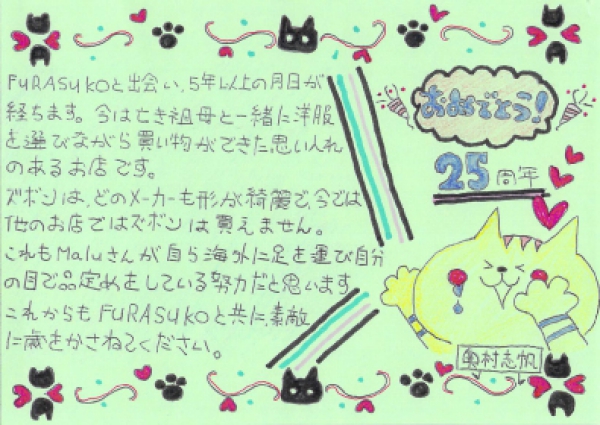 FURASUKOと出会い、5年以上の月日が
経ちます。今は亡き祖母と一緒に洋服
を選びながら買い物ができた、思い入れ
のあるお店です。
ズボンは、どのメーカーも形が綺麗で、今では
他のお店ではズボンは買えません。
これもMaluさんが自ら海外に足を運び自分
の目で品定めをしている努力だと思います
これからもFURASUKOと共に、素敵
に歳をかさねてください。
おめでとう!
25周年
奥村志帆